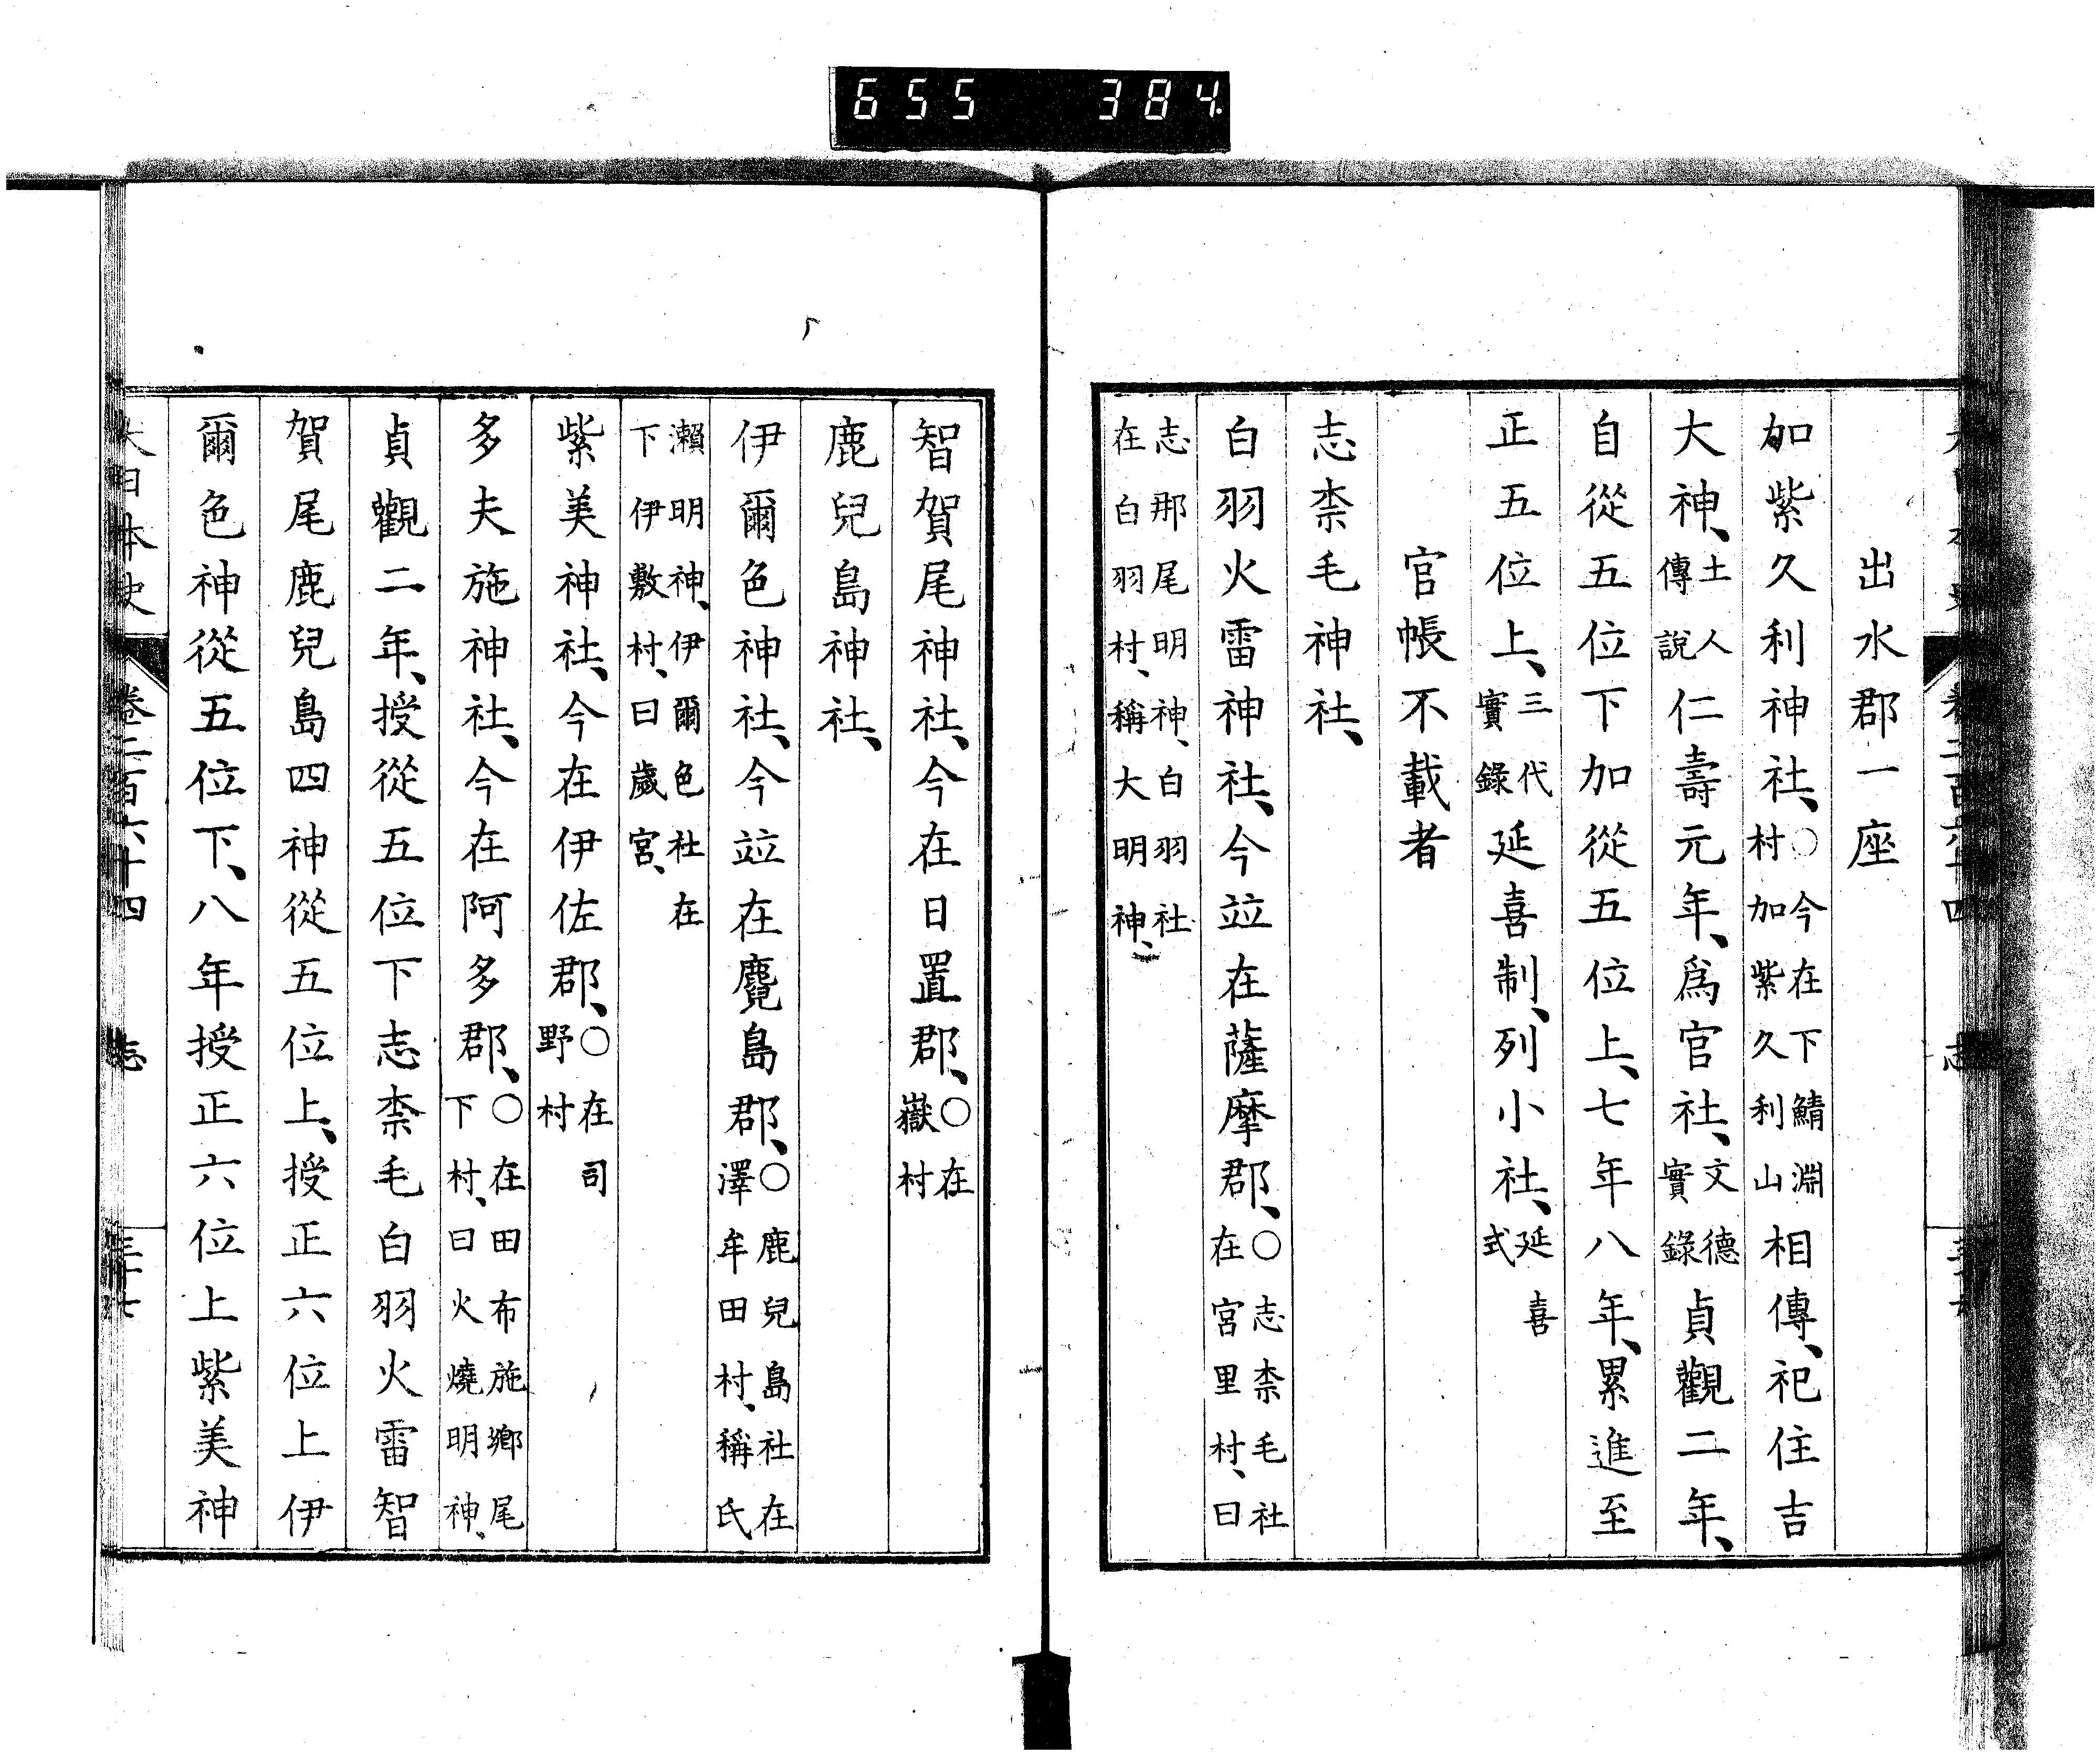 655 384
出水郡一座
加紫久利神社、○今在下鯖淵村加紫久利山相傳、祀住吉
大神、土人傳說仁壽元年、爲官社、文德實錄貞觀二年、
自從五位下加從五位上、七年八年、累進至
正五位上、三代實錄延喜制、列小社、延喜式
官帳不載者
志柰毛神社、
白羽火雷神社、今竝在薩摩郡、○志柰毛社在宮里村、曰
志那尾明神、白羽社在白羽村、稱大明神、
智賀尾神社、今在日置郡、○在嶽村
鹿兒島神社、
伊爾色神社、今竝在麑島郡、○鹿兒島社在澤牟田村、稱氏
瀨明神、伊爾色社在下伊敷村、曰歲宮、
紫美神社、今在伊佐郡、○在司野村
多夫施神社、今在阿多郡、○在田布施鄉尾下村、曰火燒明神、
貞觀二年、授從五位下志柰毛白羽火雷智
賀尾鹿兒島四神從五位上、授正六位上伊
爾色神從五位下、八年授正六位上紫美神
大日本史 卷二百六十四 志 三十七